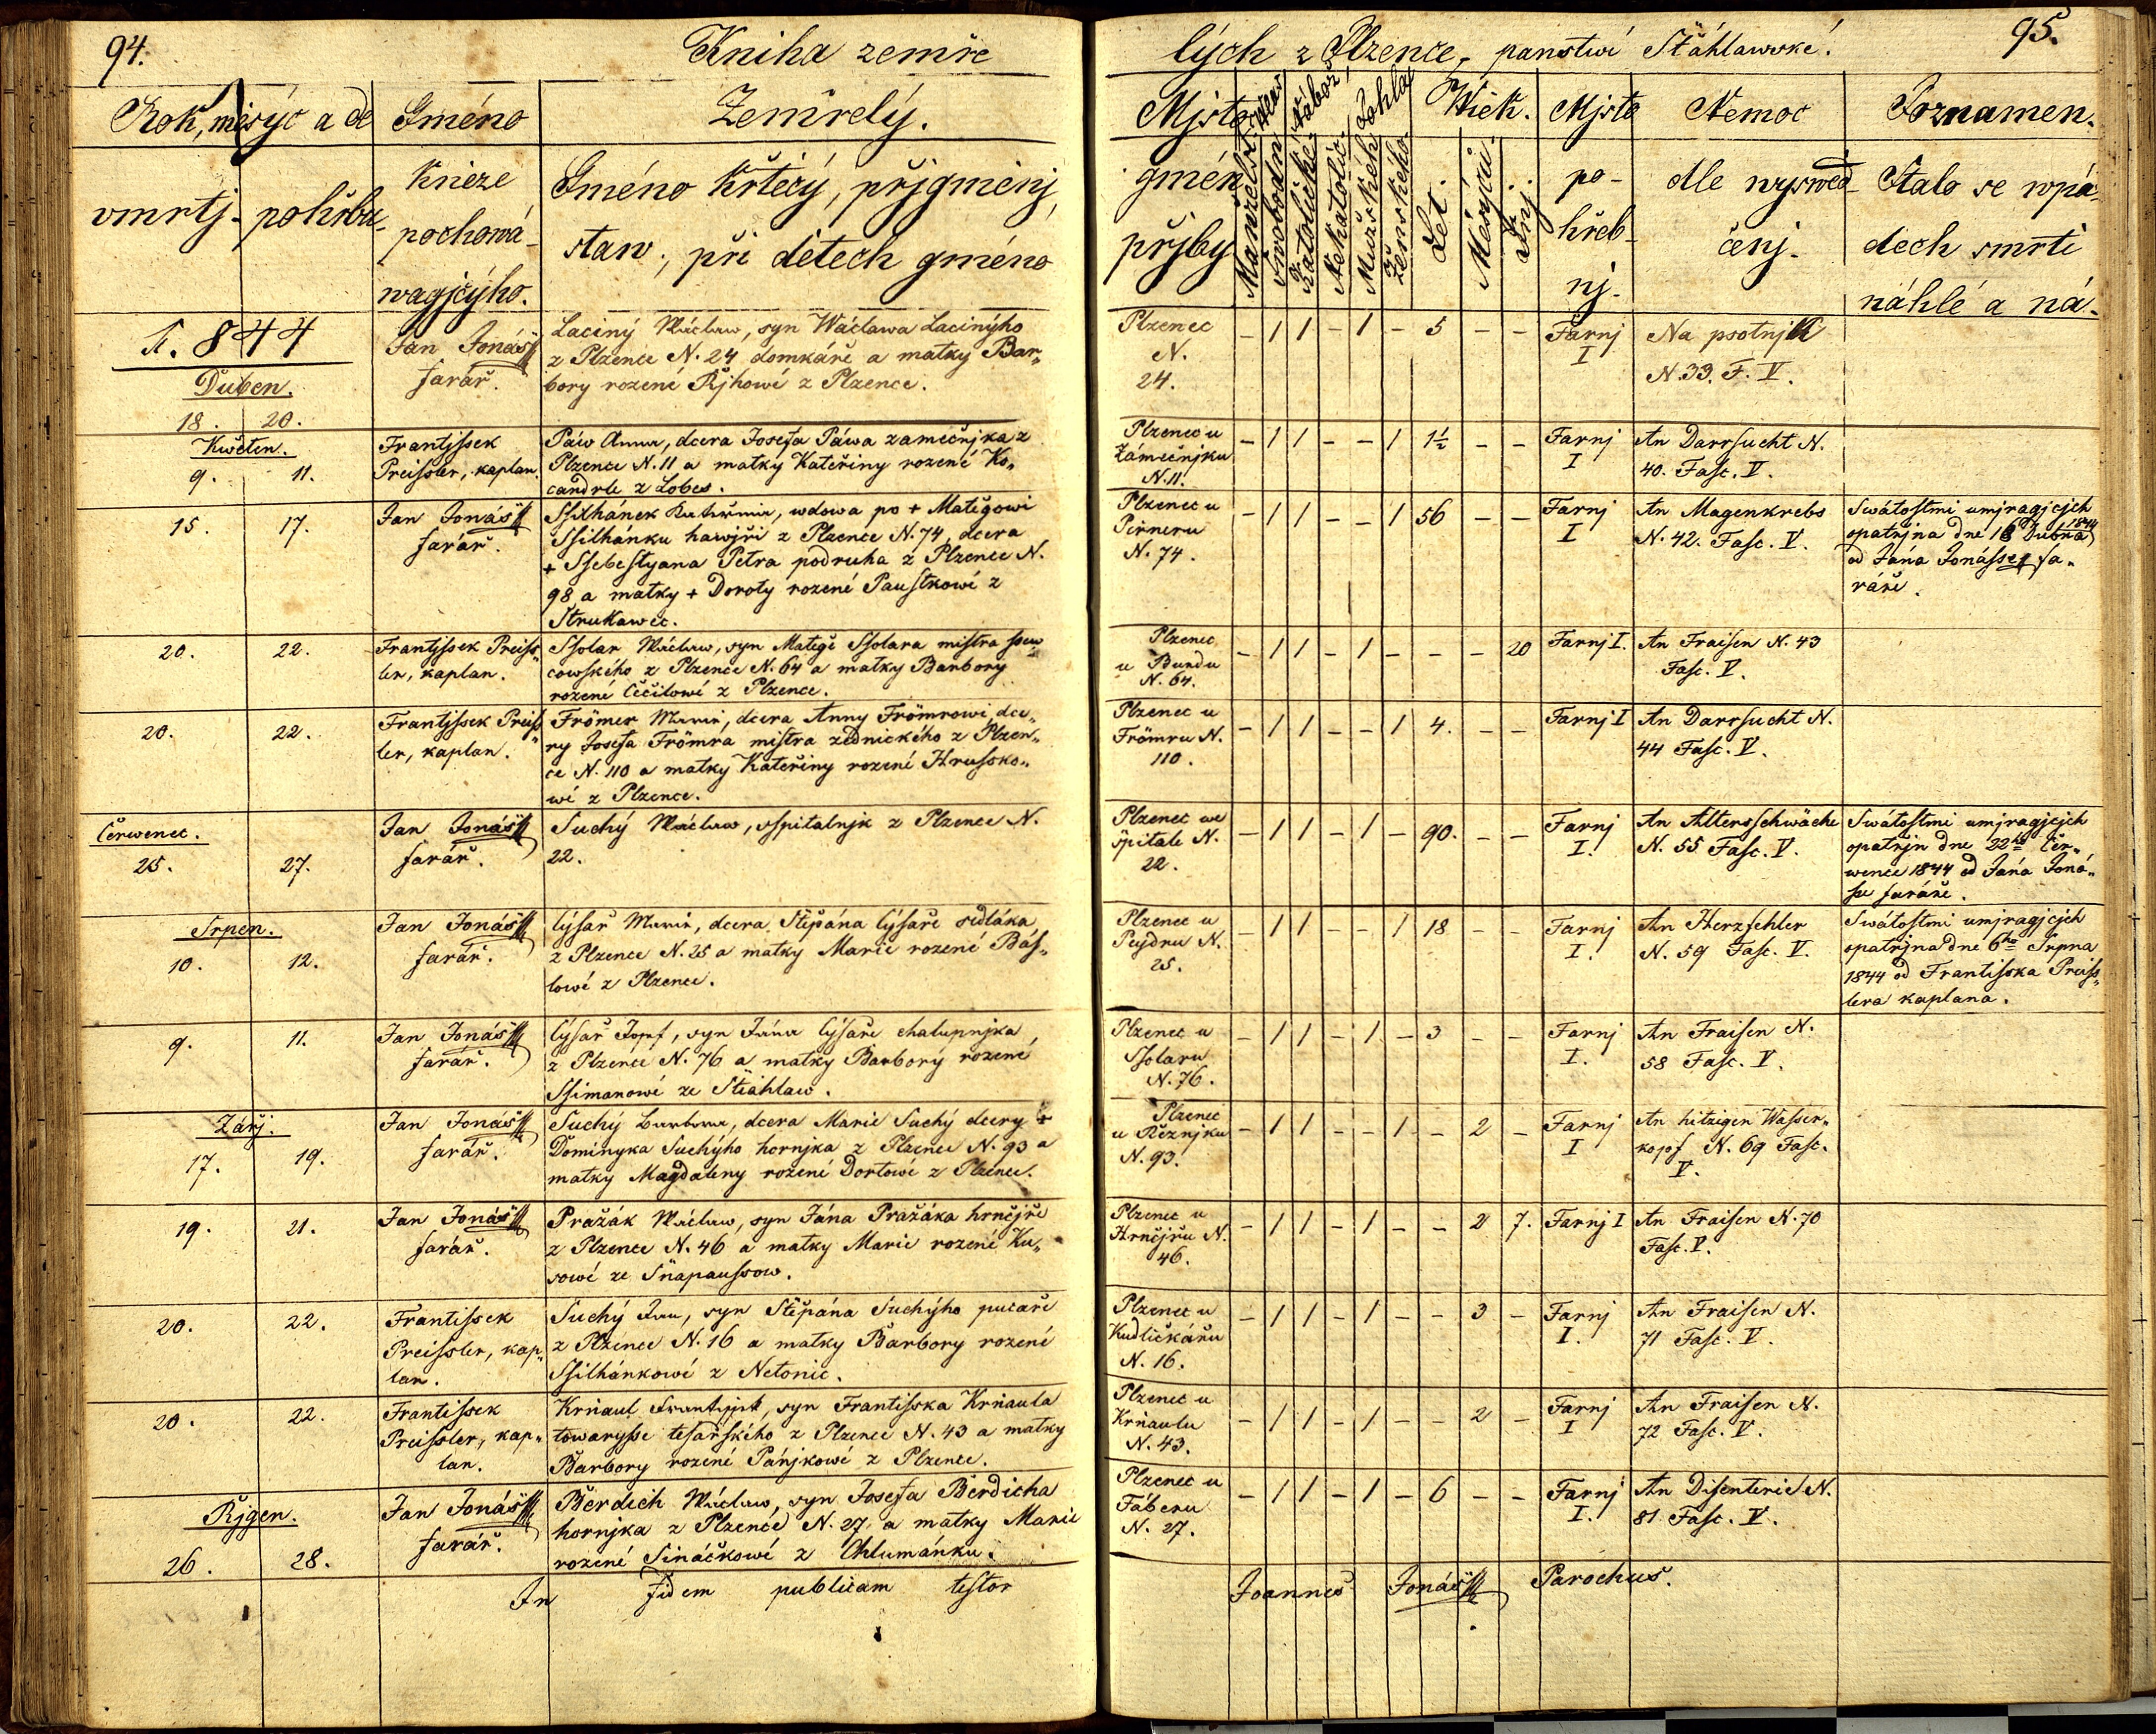 94.
Kniha zemře
lých z Plzence, panstwí Šťáhlawské.
95.
Rok, měsýc a de
Gméno
Zemřelý.
vmrtj. pohřbu
Kněze
pochowá-
wagjcýho.
Gméno křtěcý, přjgmenj,
staw, při dětech gméno
Mjsto
gmén
přjby
Manželské
Swobodní
Katolické
Nekatolic.
Mužského
Ženského
Wěk.
Let.
Měsýců.
Dnj.
Mjsto
po-
hřeb-
nj.
Nemoc
dle wyswěd-
čenj.
Poznamen.
Stalo se wpá-
dech smrti
náhlé a ná-
1.844
Duben.
18. 20.
Jan Jonáš
farář.
Laciný Wáclaw, syn Wáclawa Lacinýho
z Plzence N. 24 domkáře a matky Bar„
bory rozené Řjhowé z Plzence.
Plzenec
N.
24.
- 1 1 - 1 - 5 - -
Farnj
I
Na psotnjk
N. 39. F. V.
Kwěten.
9. 11.
Frantjssek
Preissler, kaplan.
Páw Anna, dcera Josefa Páwa zámečnjka z
Plzence N. 11 a matky Kateřiny rozené Ko„
candrle z Lobes.
Plzenec u
Zámečnjku
N. 11.
- 1 1 - - 1 1½ - -
Farnj
I
An Darrsucht N.
40. Fasc. V.
15. 17.
Jan Jonáš
farář.
Ssilhánek Kateřina, wdowa po + Matěgowi
Ssilhánku hawjři z Plzence N. 74, dcera
+ Ssebestyana Petra podruha z Plzence N.
98 a matky + Doroty rozené Paustkowé z
Strukawec.
Plzenec u
Pirneru
N. 74.
- 1 1 - - 1 56 - -
Farnj
I
An Magenkrebs
N. 42. Fasc. V.
Swátostmi umjragjcjch
opatřjna dne 18 Dubna 1844
od Jána Jonásse fa„
ráře.
20. 22.
Frantjssek Preiss„
ler, kaplan.
Ssolar Wáclaw, syn Matěge Ssolara mistra ssew„
cowského z Plzence N. 64 a matky Barbory
rozené Cečilowé z Plzence.
Plzenec
u Bundu
N. 64.
- 1 1 - 1 - - - 20
Farnj I.
An Fraisen N. 43
Fasc. V.
20. 22.
Frantjssek Preiss„
ler, kaplan.
Frömer Maria, dcera Anny Frömrowi, dce„
ry Josefa Frömra mistra zednického z Plzen„
ce N. 110 a matky Kateřiny rozené Hrussko„
wé z Plzence.
Plzenec u
Frömru N.
110.
- 1 1 - - 1 4. - -
Farnj I
An Darrsucht N.
44 Fasc. V.
Čerwenec.
25. 27.
Jan Jonáš
farář.
Suchý Wáclaw, sspitalnjk z Plzence N.
22.
Plzenec we
špitale N.
22.
- 1 1 - 1 - 90. - -
Farnj
I.
An Altersschwäche
N. 55 Fasc. V.
Swátostmi umjragjcjch
opatřjn dne 22ho Čer„
wence 1844 od Jána Joná„
sse faráře.
Srpen.
10. 12.
Jan Jonáš
farář.
Cýsař Maria, dcera Štěpána Cýsaře sedláka
z Plzence N. 25 a matky Marie rozené Bás„
lowé z Plzence.
Plzenec u
Pejdru N.
25.
- 1 1 - - 1 18 - -
Farnj
I.
An Herzfehler
N. 59 Fasc. V.
Swátostmi umjragjcjch
opatřjna dne 6ho Srpna
1844 od Frantisska Preiss„
lera kaplana.
9. 11.
Jan Jonáš
farář.
Cýsař Josef, syn Jána Cýsaře chalupnjka
z Plzence N. 76 a matky Barborý rozené
Ssimanowé ze Štiahlaw.
Plzenec u
Ssolaru
N. 76.
- 1 1 - 1 - 3 - -
Farnj
I.
An Fraisen N.
58 Fasc. V.
Zářj.
17. 19.
Jan Jonáš
farář.
Suchý Barbora, dcera Marie Suchý dcery +
Dominyka Suchýho hornjka z Plzence N. 93 a
matky Magdaleny rozené Dortowé z Plzence.
Plzenec
u Řeznjku
N. 93.
- 1 1 - - 1 - 2 -
Farnj
I
An hitzigen Wasser„
kopf N. 69 Fasc.
V.
19. 21.
Jan Jonáš
farář.
Pražák Wáclaw, syn Jána Pražáka hrnčjře
z Plzence N. 46 a matky Marie rozené Ku„
sowé ze Snapaussow.
Plzenec u
Hrnčjřu N.
46.
- 1 1 - 1 - - 2 7.
Farnj I
An Fraisen N. 70
Fasc. V.
20. 22.
Frantissek
Preissler, kap„
lan.
Suchý Jan, syn Štěpána Suchýho pucaře
z Plzence N. 16 a matky Barbory rozené
Ssilhánkowé z Netonic.
Plzenec u
Kudličkářu
N. 16.
- 1 1 - 1 - - 3 -
Farnj
I.
An Fraisen N.
71 Fasc. V.
20. 22.
Frantissek
Preissler, kap„
lan.
Krňaul Frantissek, syn Frantisska Krňaula
towarysse tesařského z Plzence N. 43 a matky
Barbory rozené Pánjkowé z Plzence.
Plzenec u
Krňaulu
N. 43.
- 1 1 - 1 - - 2 -
Farnj
I
An Fraisen N.
72 Fasc. V.
Řjgen.
26. 28.
Jan Jonáš
farář.
Berdich Wáclaw, syn Josefa Berdicha
hornjka z Plzence N. 27 a matky Marie
rozené Sináčkowé z Chlumanku.
Plzenec u
Fáberu
N. 27.
- 1 1 - 1 - 6 - -
Farnj
I.
An Disenterie N.
81 Fasc. V.
In fidem publicam testor
Joannes Jonáš Parochus.